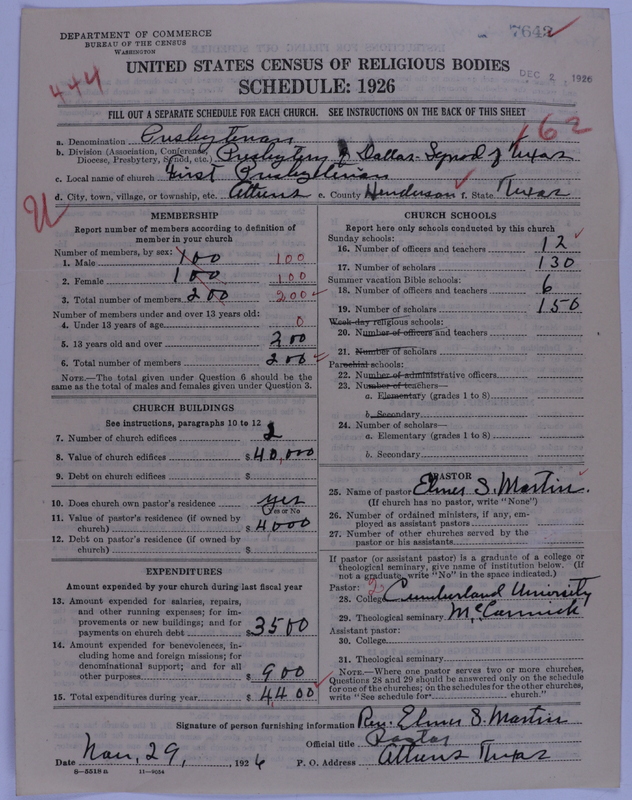 DEPARTMENT OF COMMERCE
BUREAU OF THE CENSUS
WASHINGTON
7643
DEC 2 1926
UNITED STATES CENSUS OF RELIGIOUS BODIES
SCHEDULE: 1926
444
FILL OUT A SEPARATE SCHEDULE FOR EACH CHURCH. SEE INSTRUCTIONS ON THE BACK OF THIS SHEET
162
a. Denomination Presbyterian
b. Division (Association, Conference, Diocese, Presbytery, Synod, etc.) Presbytery of Dallas-Synod of Texas
c. Local name of church First Presbyterian
d. City, town, village, or township, etc. Athens e. County Henderson f. State Texas
MEMBERSHIP
Report number of members according to definition of
member in your church
Number of members, by sex:
1. Male 100 100
2. Female 100 100
3. Total number of members 200 200
Number of members under and over 13 years old:
4. Under 13 years of age 0
5. 13 years old and over 200
6. Total number of members 200
NOTE.—The total given under Question 6 should be
same as the total of males and females given under Question 3.
CHURCH BUILDINGS
See instructions, paragraphs 10 to 12
7. Number of church edifices 2
8. Value of church edifices $40,000
9. Debt on church edifices $
10. Does church own pastor's residence yes
Yes or No
11. Value of pastor's residence (if owned by
church) $4000
12. Debt on pastor's residence (if owned by
church) $
EXPENDITURES
Amount expended by your church during last fiscal year
13. Amount expended for salaries, repairs,
and other running expenses; for im-
provements or new buildings; and for
payments on church debt $3500
14. Amount expended for benevolences, in-
cluding home and foreign missions; for
denominational support; and for all
other purposes $900
15. Total expenditures during year $4400
CHURCH SCHOOLS
Report here only schools conducted by this church
Sunday schools:
16. Number of officers and teachers 12
17. Number of scholars 130
Summer vacation Bible schools:
18. Number of officers and teachers 6
19. Number of scholars 150
Week-day religious schools:
20. Number of officers and teachers
21. Number of scholars
Parochial schools:
22. Number of administrative officers
23. Number of teachers—
a. Elementary (grades 1 to 8)
b. Secondary
24. Number of scholars—
a. Elementary (grades 1 to 8)
b. Secondary
PASTOR
25. Name of pastor Elmer S. Martin.
(If church has no pastor, write "None")
26. Number of ordained ministers, if any, em-
ployed as assistant pastors
27. Number of other churches served by the
pastor or his assistants
If pastor (or assistant pastor) is a graduate of a college or
theological seminary, give name of institution below. (If
not a graduate, write "No" in the space indicated.)
Pastor: 2
28. College Cumberland University
29. Theological seminary McCormick
Assistant pastor:
30. College
31. Theological seminary
NOTE.—Where one pastor serves two or more churches,
Questions 28 and 29 should be answered only on the schedule
for one of the churches; on the schedules for the other churches,
write "See schedule for church."
Signature of person furnishing information Rev. Elmer S. Martin
Official title Pastor
Date Nov, 29, 1926 P. O. Address Athens Texas
8—5518 a 11—9054